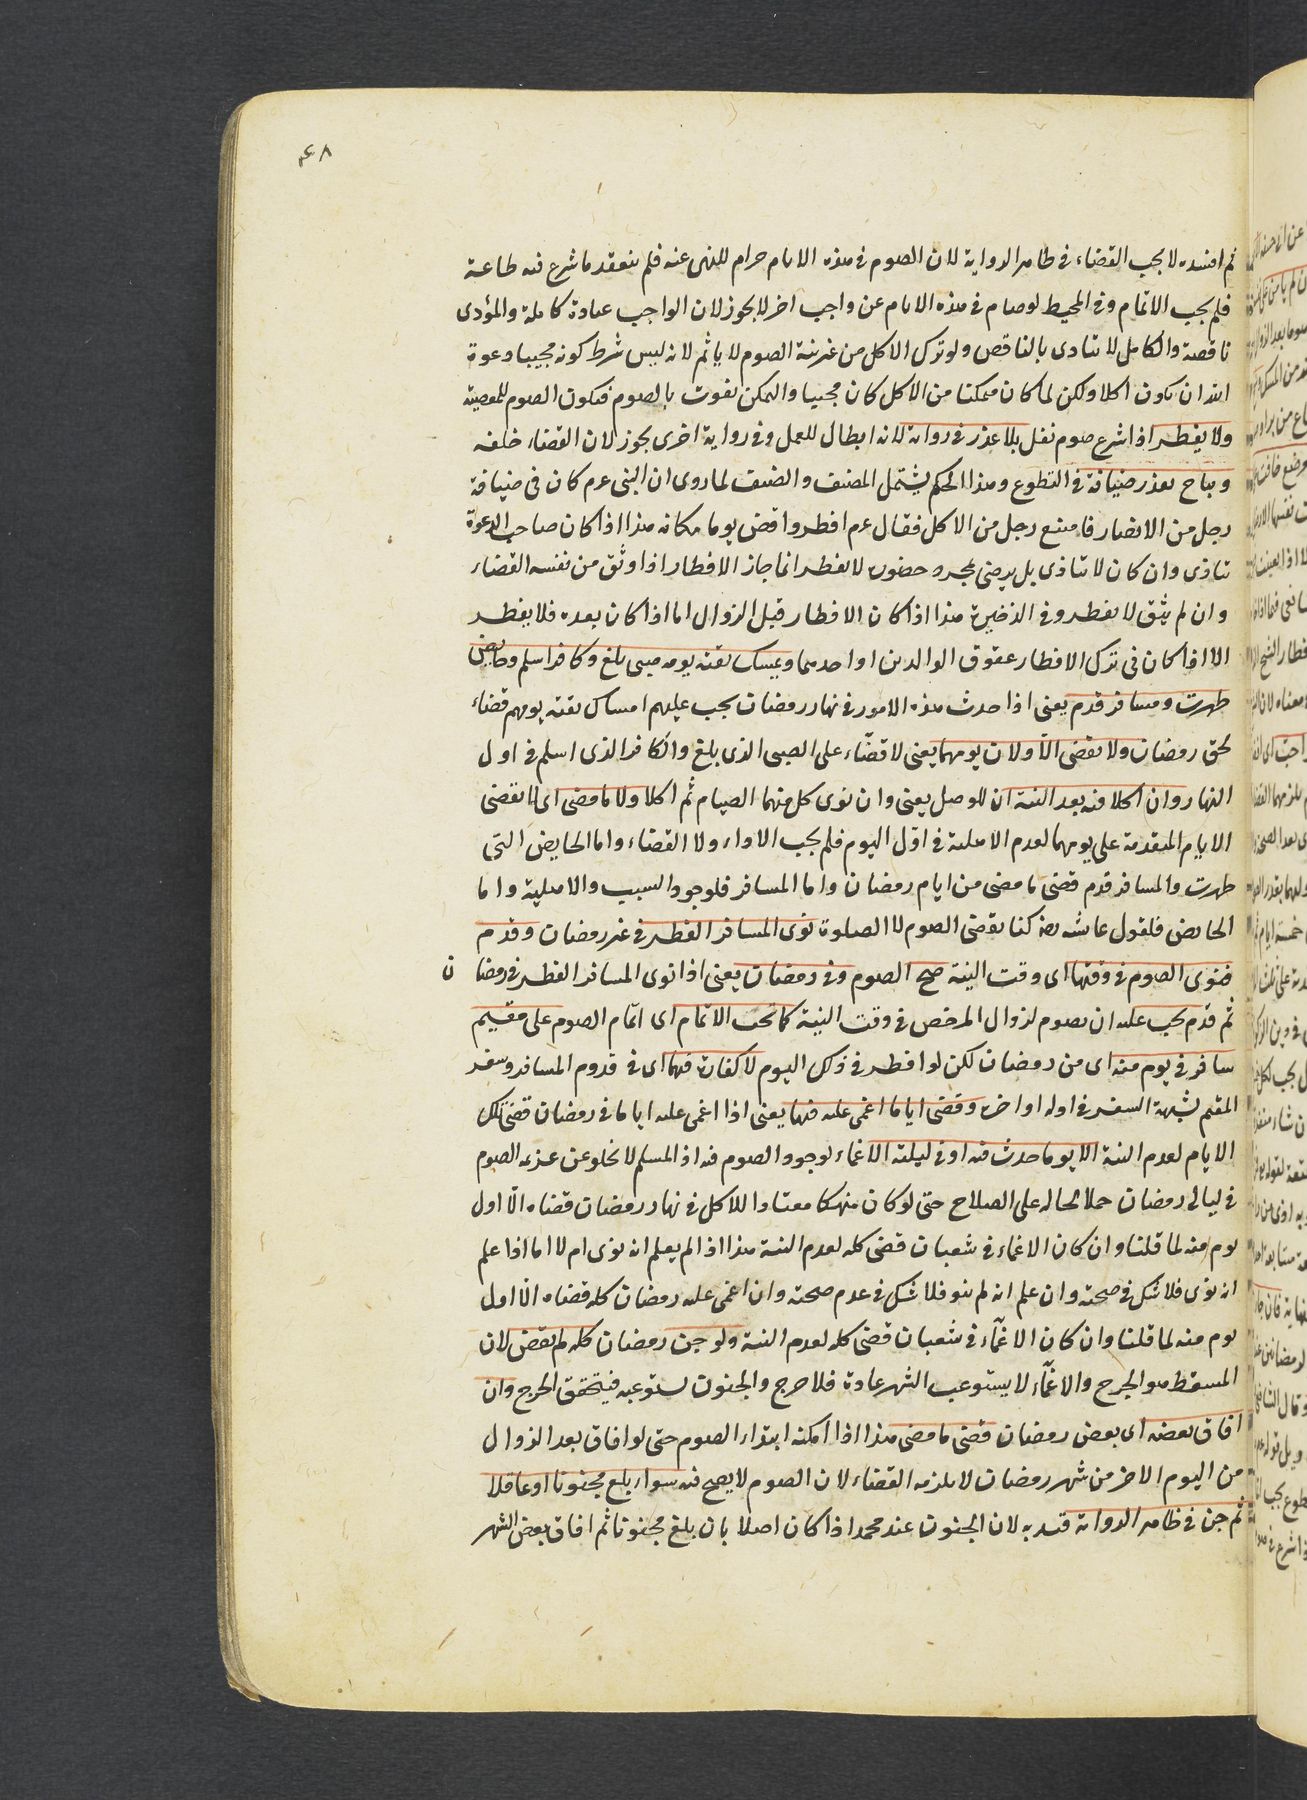 ۴۸
ثم افسده لا يجب القضاء في ظاهر الرواية لان الصوم في هذه الايام حرام للنهى عنه فلم ينعقد ما شرع فيه طاعة
فلم يجب الاتمام وفي المحيط لو صام في هذه الايام عن واجب اخر لا يجوز لان الواجب عبادة كاملة والمؤدى
ناقصة والكامل لا يتادى بالناقص ولو ترك الاكل من غير نية الصوم لا ياثم لانه ليس شرط كونه مجيبا دعوة
الله ان يكون اكلا ولكن لما كان ممكنا من الاكل كان مجيبا والتمكن يفوت بالصوم فيكون الصوم للمعصية
ولا يفطر اذا شرع صوم نفل بلا عذر في رواية لانه ابطال للعمل وفي رواية اخرى يجوز لان القضاء خلفه
ويباح بعذر ضيافة في التطوع وهذا الحكم يشتمل المضيف والضيف لما روى ان النبى عم كان في ضيافة
رجل من الانصار فامتنع رجل من الاكل فقال عم افطر واقض يوما مكانه هذا اذا كان صاحب الدعوة
يتاذى وان كان لا يتاذى بل يرضى بمجرد حضوره لا يفطر انما جاز الافطار اذا وثق من نفسه القضاء
وان لم يثق لا يفطر وفي الذخيرة هذا اذا كان الافطار قبل الزوال اما اذا كان بعده فلا يفطر
الا اذا كان في ترك الافطار عقوق الوالدين او احدهما ويمسك بقية يومه صبى بلغ وكافر اسلم وحايض
طهرت ومسافر قدم يعنى اذا حدث هذه الامور في نهار رمضان يجب عليهم امساك بقية يومهم قضاء
لحق رمضان ولا يقضى الاولان يومهما يعنى لا قضاء على الصبى الذى بلغ والكافر الذى اسلم في اول
النهار وان اكلا فيه بعد النية ان للوصل يعنى وان نوى كل منهما الصيام ثم اكلا ولا ما مضى اى لا يقضى
الايام المتقدمة على يومهما لعدم الاهلية في اول اليوم فلم يجب الاداء ولا القضاء واما الحايض التى
طهرت والمسافر قدم قضى ما مضى من ايام رمضان واما المسافر فلوجود السبب والاهلية واما
الحايض فلقول عايشه رضه كنا نقضى الصوم لا الصلوة نوى المسافر الفطر في غير رمضان وقدم
فنوى الصوم في وقتها اى وقت النية صح الصوم وفي رمضان يعنى اذا نوى المسافر الفطر في رمضان
ثم قدم يجب عليه ان يصوم لزوال المرخص في وقت النية كما يجب الاتمام اى اتمام الصوم على مقيم
سافر في يوم منه اى من رمضان لكن لو افطر في ذلك اليوم لا كفارة فيهما اى في قدوم المسافر وسفر
المقيم لشبهة السفر في اوله او اخره وقضى اياما اغمى عليه فيها يعنى اذا اغمى عليه اياما في رمضان قضى تلك
الايام لعدم النية الا يوما حدث فيه او في ليلته الاغماء لوجود الصوم فيه اذ المسلم لا يخلو عن عزيمه الصوم
في ليالى رمضان حملا لحاله على الصلاح حتى لو كان منهمكا معتادا للاكل في نهار رمضان قضاه الا اول
يوم منه لما قلنا وان كان الاغماء في شعبان قضى كله لعدم النية هذا اذا لم يعلم انه نوى ام لا اما اذا علم
انه نوى فلا شك في صحته وان علم انه لم ينو فلا شك في عدم صحته وان اغمى عليه رمضان كله قضاه الا اول
يوم منه لما قلنا وان كان الاغمآء في شعبان قضى كله لعدم النية ولو جن رمضان كله لم يقض لان
المسقط هو الحرج والاغمآء لا يستوعب الشهر عادة فلا حرج والجنون يستوعبه فيتحقق الحرج وان
افاق بعضه اى بعض رمضان قضى ما مضى هذا اذا امكنه ابتداء الصوم حتى لو افاق بعد الزوال
من اليوم الاخر من شهر رمضان لا يلزمه القضاء لان الصوم لا يصح فيه سواء بلغ مجنونا او عاقلا
ثم جن في ظاهر الرواية قيد به لان الجنون عند محمد اذا كان اصلا بان بلغ مجنونا ثم افاق بعض الشهر